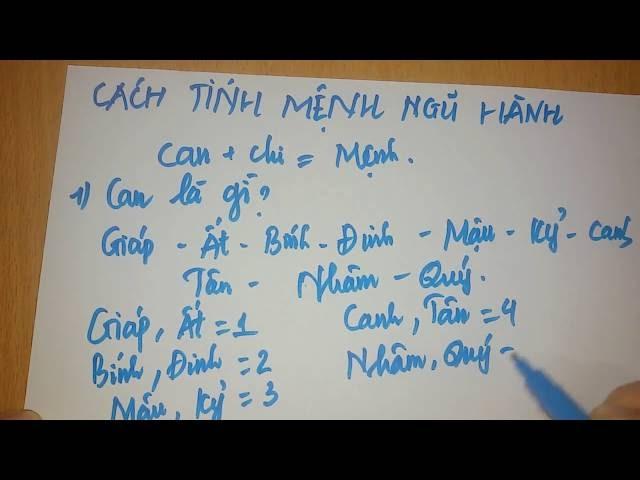 CÁCH TÍNH MỆNH NGŨ HÀNH
Can + chi = Mệnh.
1) Can là gì?
Giáp - Ất - Bính - Đinh - Mậu - Kỷ - Canh
Tân - Nhâm - Quý.
Giáp, Ất = 1
Bính, Đinh = 2
Mậu, Kỷ = 3
Canh, Tân = 4
Nhâm, Quý =